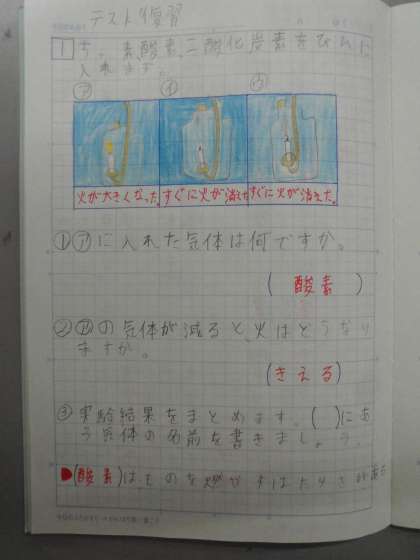 テスト復習
1 ちっ素、酸素、二酸化炭素をびんに
入れます。
㋐ ㋑ ㋒
火が大きくなった。 すぐに火が消えた すぐに火が消えた。
①㋐に入れた気体は何ですか。
(酸素)
②㋐の気体が減ると、火はどうなり
ますか。
(きえる)
③実験結果をまとめます。( )にあ
う気体の名前を書きましょう。
(酸素)は、ものを燃やすはたらきがある